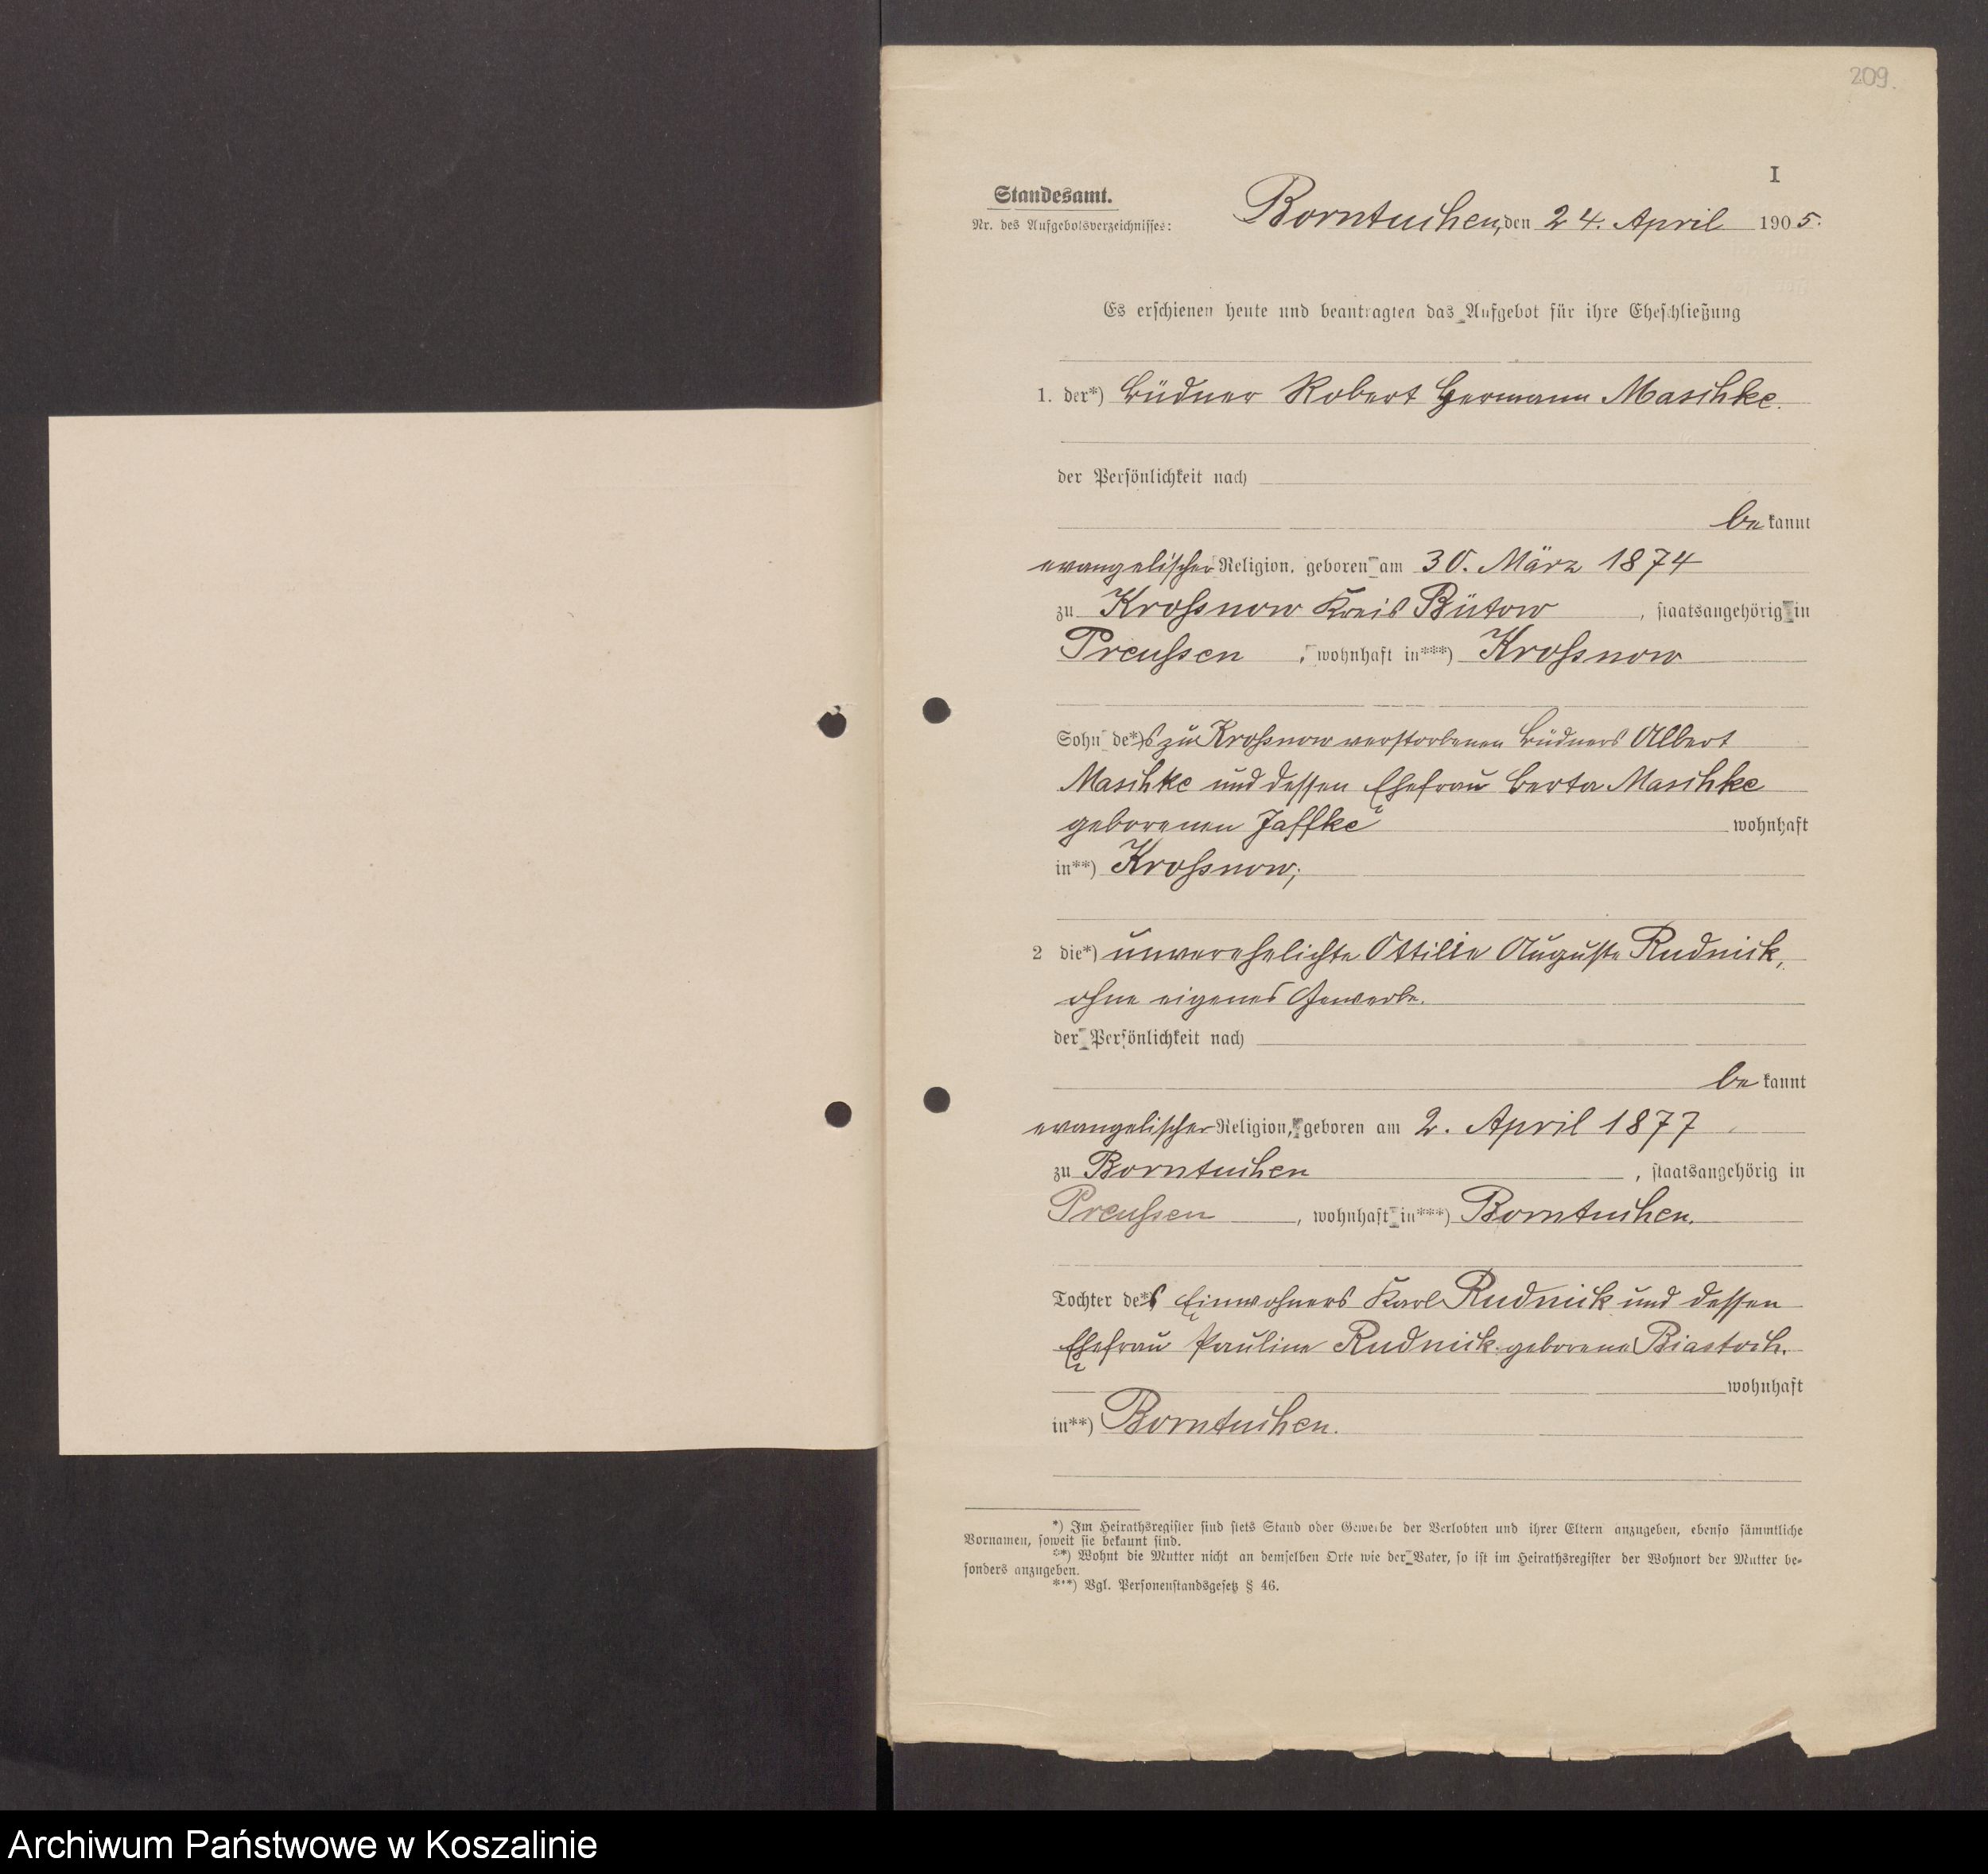 209.
I
Standesamt.
Borntuchen, den 24. April 1905.
Nr. des Aufgebotsverzeichnisses:
Es erschienen heute und beantragten das Aufgebot für ihre Eheschließung
1. der*) Büdner Robert Hermann Maschke.
der Persönlichkeit nach
be kannt
evangelischer Religion, geboren am 30. März 1874
zu Kroßnow Kreis Bütow, staatsangehörig in
Preußen, wohnhaft in***) Kroßnow
Sohn de*)s zu Kroßnow verstorbenen Büdners Albert
Maschke und dessen Ehefrau Berta Maschke
geborenen Jaffke wohnhaft
in**) Kroßnow;
2 die*) unverehelichte Ottilie Auguste Rudnick,
ohne eigenes Gewerbe.
der Persönlichkeit nach
be kannt
evangelischer Religion, geboren am 2. April 1877
zu Borntuchen, staatsangehörig in
Preußen, wohnhaft in***) Borntuchen.
Tochter de*s Einwohners Karl Rudnick und dessen
Ehefrau Pauline Rudnick geborene Biastoch.
wohnhaft
in**) Borntuchen.
*) Im Heirathsregister sind stets Stand oder Gewerbe der Verlobten und ihrer Eltern anzugeben, ebenso sämmtliche
Vornamen, soweit sie bekannt sind.
**) Wohnt die Mutter nicht an demselben Orte wie der Vater, so ist im Heirathsregister der Wohnort der Mutter be-
sonders anzugeben.
***) Vgl. Personenstandsgesetz § 46.
Archiwum Państwowe w Koszalinie